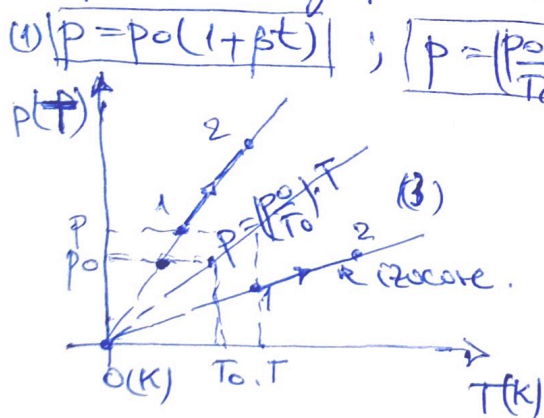 (1) p = p0(1+βt) ; p = (p0/T0
p(T)
2
1
p = (p0/T0)·T
(3)
p
p0
2
1
izocore.
O(K) T0 . T
T(K)